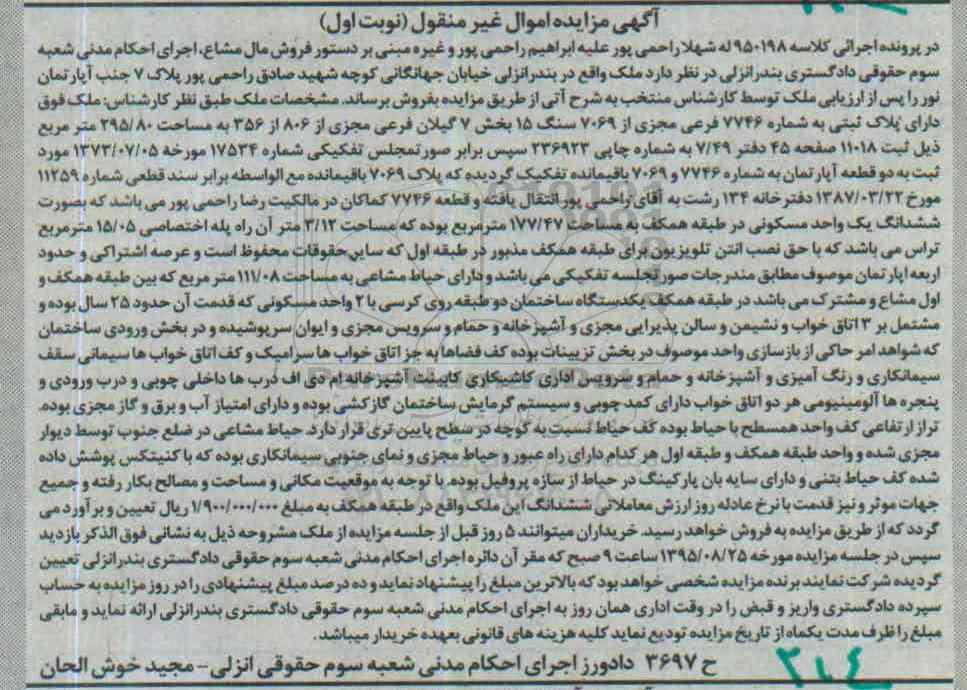 آگهی مزایده اموال غیر منقول (نوبت اول)
در پرونده اجرائی کلاسه ۹۵۰۱۹۸ له شهلا راحمی پور علیه ابراهیم راحمی پور و غیره مبنی بر دستور فروش مال مشاع، اجرای احکام مدنی شعبه
سوم حقوقی دادگستری بندرانزلی در نظر دارد ملک واقع در بندرانزلی خیابان جهانگانی کوچه شهید صادق راحمی پور پلاک ۷ جنب آپارتمان
نور را پس از ارزیابی ملک توسط کارشناس منتخب به شرح آتی از طریق مزایده بفروش برساند. مشخصات ملک طبق نظر کارشناس: ملک فوق
دارای پلاک ثبتی به شماره ۷۷۴۶ فرعی مجزی از ۷۰۶۹ سنگ ۱۵ بخش ۷ گیلان فرعی مجزی از ۸۰۶ از ۳۵۶ به مساحت ۲۹۵/۸۰ متر مربع
ذیل ثبت ۱۱۰۱۸ صفحه ۴۵ دفتر ۷/۴۹ به شماره چاپی ۲۳۶۹۲۳ سپس برابر صورتمجلس تفکیکی شماره ۱۷۵۳۴ مورخه ۱۳۷۳/۰۷/۰۵ مورد
ثبت به دو قطعه آپارتمان به شماره ۷۷۴۶ و ۷۰۶۹ باقیمانده تفکیک گردیده که پلاک ۷۰۶۹ باقیمانده مع الواسطه برابر سند قطعی شماره ۱۱۲۵۹
مورخ ۱۳۸۷/۰۳/۲۲ دفترخانه ۱۳۴ رشت به آقای راحمی پور انتقال یافته و قطعه ۷۷۴۶ کماکان در مالکیت رضا راحمی پور می باشد که بصورت
ششدانگ یک واحد مسکونی در طبقه همکف به مساحت ۱۷۷/۴۷ مترمربع بوده که مساحت ۳/۱۲ متر آن راه پله اختصاصی ۱۵/۰۵ مترمربع
تراس می باشد که با حق نصب انتن تلویزیون برای طبقه همکف مذبور در طبقه اول که سایر حقوقات محفوظ است و عرصه اشتراکی و حدود
اربعه اپارتمان موصوف مطابق مندرجات صورتجلسه تفکیکی می باشد و دارای حیاط مشاعی به مساحت ۱۱۱/۰۸ متر مربع که بین طبقه همکف و
اول مشاع و مشترک می باشد در طبقه همکف یکدستگاه ساختمان دو طبقه روی کرسی با ۲ واحد مسکونی که قدمت آن حدود ۲۵ سال بوده و
مشتمل بر ۳ اتاق خواب و نشیمن و سالن پذیرایی مجزی و آشپزخانه و حمام و سرویس مجزی و ایوان سرپوشیده و در بخش ورودی ساختمان
که شواهد امر حاکی از بازسازی واحد موصوف در بخش تزیینات بوده کف فضاها به جز اتاق خواب ها سرامیک و کف اتاق خواب ها سیمانی سقف
سیمانکاری و رنگ آمیزی و آشپزخانه و حمام و سرویس اداری کاشیکاری کابینت آشپزخانه ام دی اف درب ها داخلی چوبی و درب ورودی و
پنجره ها آلومینیومی هر دو اتاق خواب دارای کمد چوبی و سیستم گرمایش ساختمان گازکشی بوده و دارای امتیاز آب و برق و گاز مجزی بوده.
تراز ارتفاعی کف واحد همسطح با حیاط بوده کف حیاط نسبت به کوچه در سطح پایین تری قرار دارد. حیاط مشاعی در ضلع جنوب توسط دیوار
مجزی شده و واحد طبقه همکف و طبقه اول هر کدام دارای راه عبور و حیاط مجزی و نمای جنوبی سیمانکاری بوده که با کنیتکس پوشش داده
شده کف حیاط بتنی و دارای سایه بان پارکینگ در حیاط از سازه پروفیل بوده. با توجه به موقعیت مکانی و مساحت و مصالح بکار رفته و جمیع
جهات موثر و نیز قدمت با نرخ عادله روز ارزش معاملاتی ششدانگ این ملک واقع در طبقه همکف به مبلغ ۱/۹۰۰/۰۰۰/۰۰۰ ریال تعیین و برآورد می
گردد که از طریق مزایده به فروش خواهد رسید. خریداران میتوانند ۵ روز قبل از جلسه مزایده از ملک مشروحه ذیل به نشانی فوق الذکر بازدید
سپس در جلسه مزایده مورخه ۱۳۹۵/۰۸/۲۵ ساعت ۹ صبح که مقر آن دائره اجرای احکام مدنی شعبه سوم حقوقی دادگستری بندرانزلی تعیین
گردیده شرکت نمایند برنده مزایده شخصی خواهد بود که بالاترین مبلغ را پیشنهاد نماید و ده درصد مبلغ پیشنهادی را در روز مزایده به حساب
سپرده دادگستری واریز و قبض را در وقت اداری همان روز به اجرای احکام مدنی شعبه سوم حقوقی دادگستری بندرانزلی ارائه نماید و مابقی
مبلغ را ظرف مدت یکماه از تاریخ مزایده تودیع نماید کلیه هزینه های قانونی بعهده خریدار میباشد.
ح ۳۶۹۷ دادورز اجرای احکام مدنی شعبه سوم حقوقی انزلی - مجید خوش الحان
۳۱۴